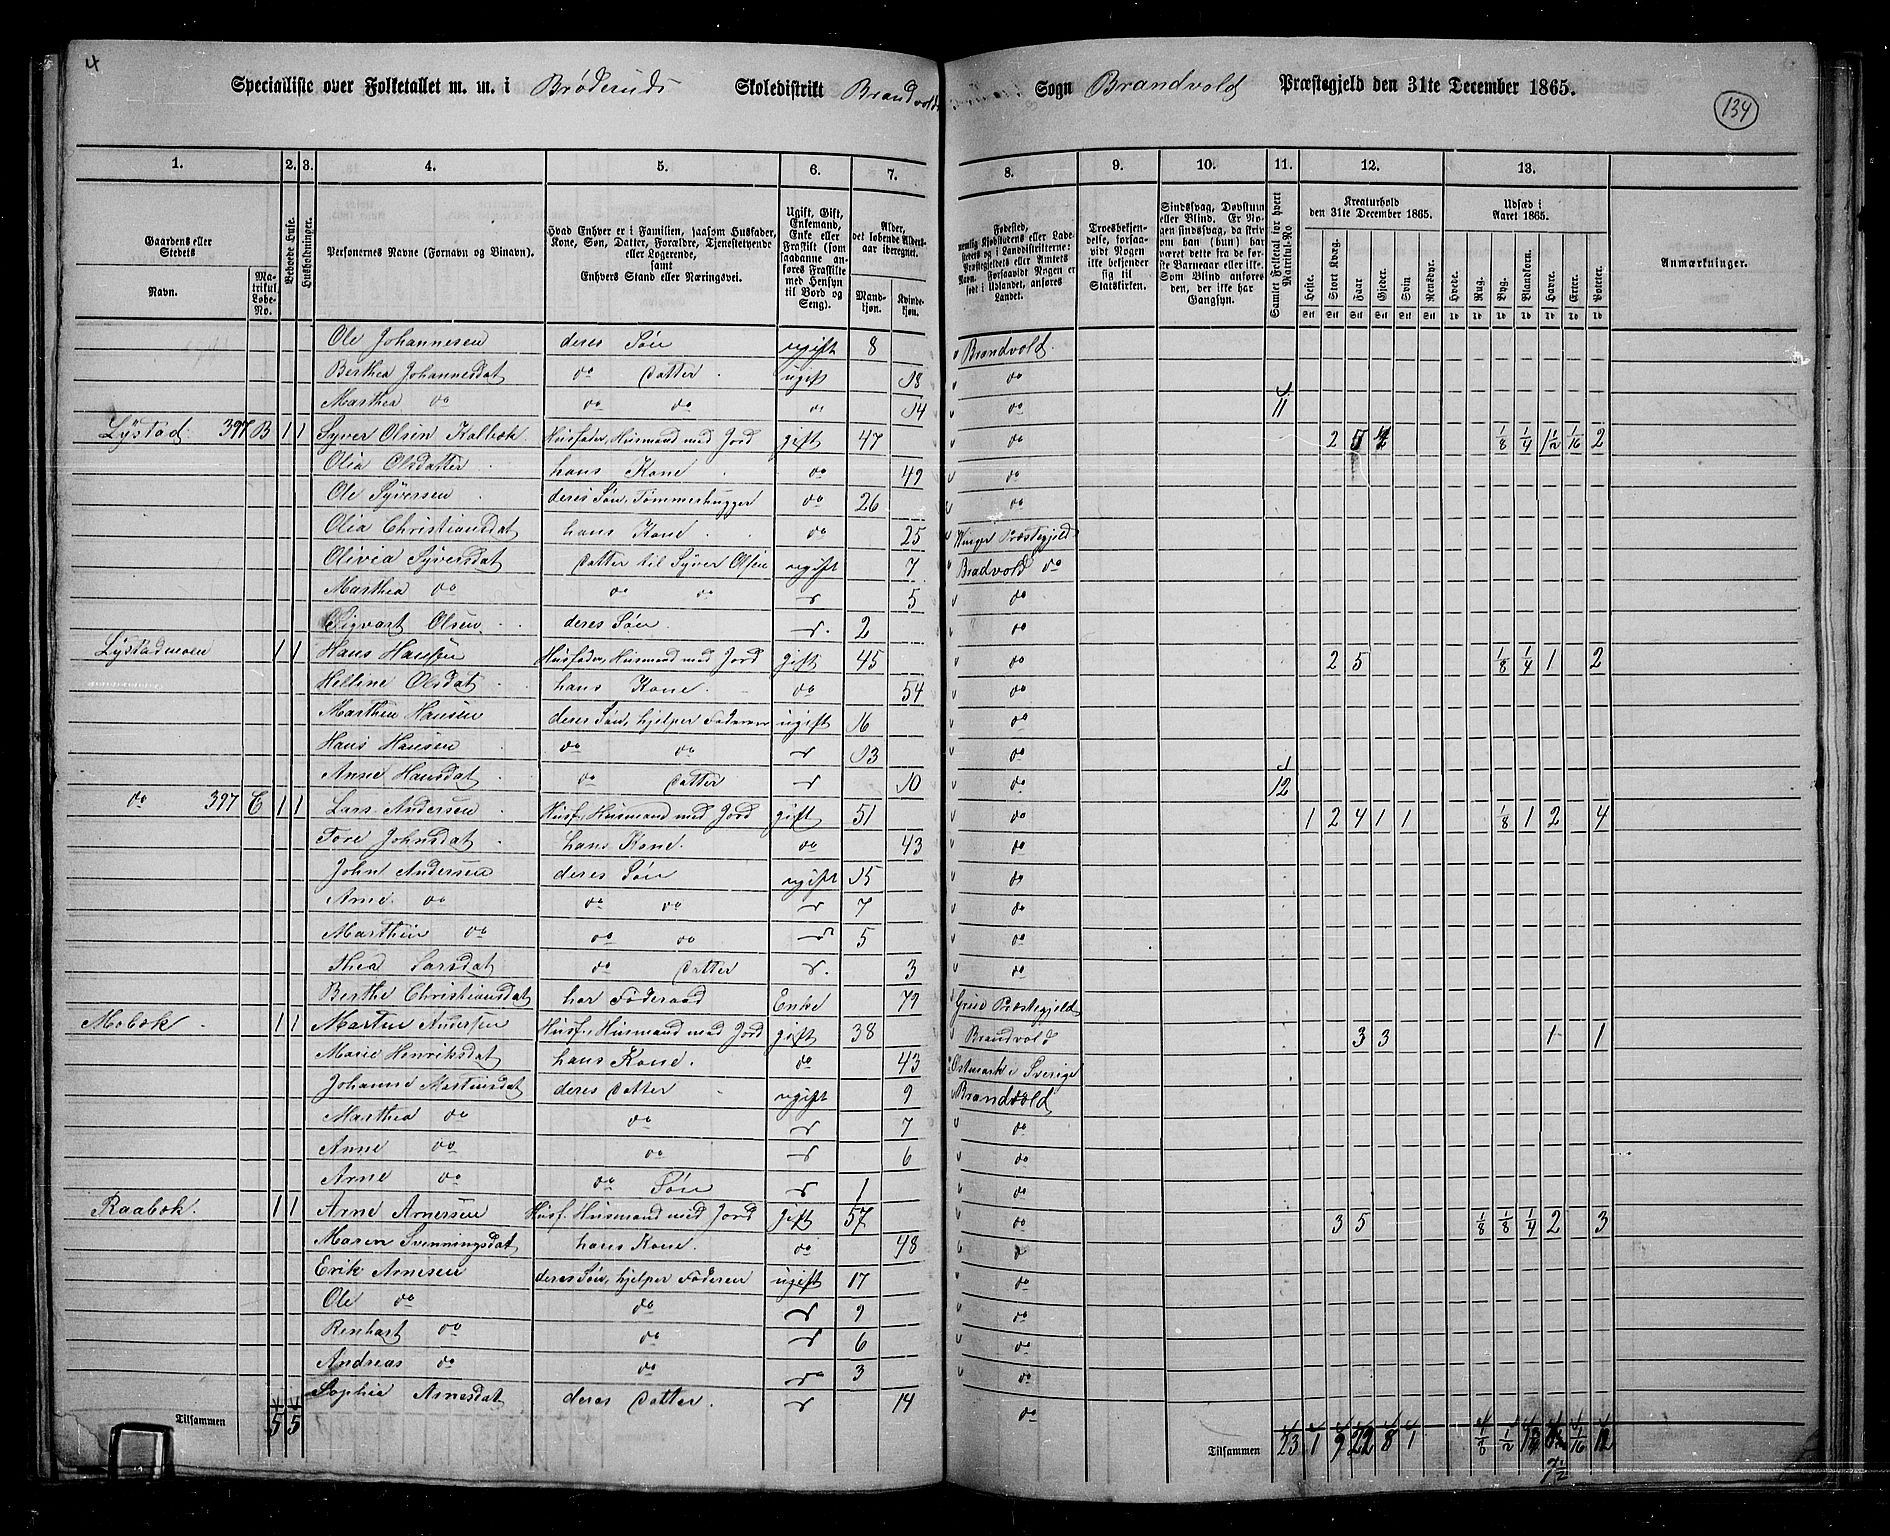 4
Specialliste over Folketallet m. m. i Bröderuds Skoledistrikt Brandvold Sogn Brandvold Præstegjeld den 31te December 1865.
134
1. 2. 3. 4. 5. 6. 7. 8. 9. 10. 11. 12. 13.
Gaardens eller Stedets Navn. Matrikul Løbe-No.
Beboede Huse.
Husholdninger.
Personernes Navne (Fornavn og Tilnavn).
Hvad Enhver er i Familien, saasom Husfader, Kone, Søn, Datter, Forældre, Tjenestetyende eller Logerende, samt Enhvers Stand eller Næringsvei.
Ugift, Gift, Enkemand, Enke eller Fraskilt (saadanne anføres Fraskilte med Hensyn til Bord og Seng).
Alder, det løbende Aldersaar iberegnet. Mandkjøn. Kvindekjøn.
Troesbekjendelse, forsaavidt Nogen ikke bekjender sig til Statskirken.
Sindssvag, Døvstum eller Blind.
Samlet Folketal for hvert Matrikul-No
Kreaturhold den 31te December 1865. Heste. Stort Kvæg. Faar. Gjeder. Svin. Rensdyr.
Udsæd i Aaret 1865. Hvede. Rug. Byg. Blandkorn. Havre. Erter. Poteter.
Anmærkninger.
Ole Johannesen deres Søn ugift 8 Brandvold.
Berthea Johannesdat do Datter ugift 18 do
Marthea do do do do 14 do 11
Lÿstad 397 B 1 1 Syver Olsen Kalbæk Husfader, Husmand med Jord gift 47 do 2 5 2 1/8 1/4 1 1/2 1/16 2
Olia Olsdatter hans Kone do 49 do
Ole Syversen deres Søn, Tømmerhugger do 26 do
Olia Christiansdat hans Kone do 25 Vinger Præstegjeld
Olivia Syversdat Datter til Syver Olsen ugift 7 Bradvold do
Marthea do do do 5 do
Sigvart Olsen deres Søn 2 do
Lÿstadmoen 1 1 Hans Hansen Husfader, Husmand med Jord gift 45 do 2 5 1/8 1/4 1 2
Hellene Olsdat hans Kone. do 54 do
Marthin Hansen deres Søn, hjelper Faderen ugift 16 do
Hans Hansen do do 13 do
Anne Hansdat do Datter 10 do 12
do 397 C 1 1 Lars Andersen Husf. Husmand med Jord gift 51 do 1 2 4 1 1 1/8 1 2 4
Tore Johnsdat hans Kone. do 43 do
John Andersen deres Søn ugift 15 do
Arne do do do 7 do
Marthin do do do 5 do
Thea Larsdat do Datter 3 do
Berthe Christiansdat har Föderaad Enke 79 Grue Præstegjeld
Mobæk 1 1 Martin Andersen Husf. Husmand med Jord gift 38 Brandvold 3 3 1 1
Marie Henriksdat hans Kone. do 43 Østmark i Sverige
Johanne Martinsdat deres Datter ugift 9 Brandvold
Marthea do do 7 do
Anne do do 6 do
Arne do do Søn 1 do
Raabæk. 1 1 Arne Arnesen Husf. Husmand med Jord gift 57 do 3 5 1/8 1/8 1/4 2 3
Maren Svenningsdat hans Kone. do 48 do
Erik Arnesen deres Søn, hjelper Faderen ugift 17 do
Ole do do 9 do
Renhart do do 6 do
Andreas do do 3 do
Sophie Arnesdat deres Datter. 14 do
Tilsammen 5 5 Tilsammen 23 1 9 22 8 1 1/8 1/2 1 3/4 1/16 12
7 1/2